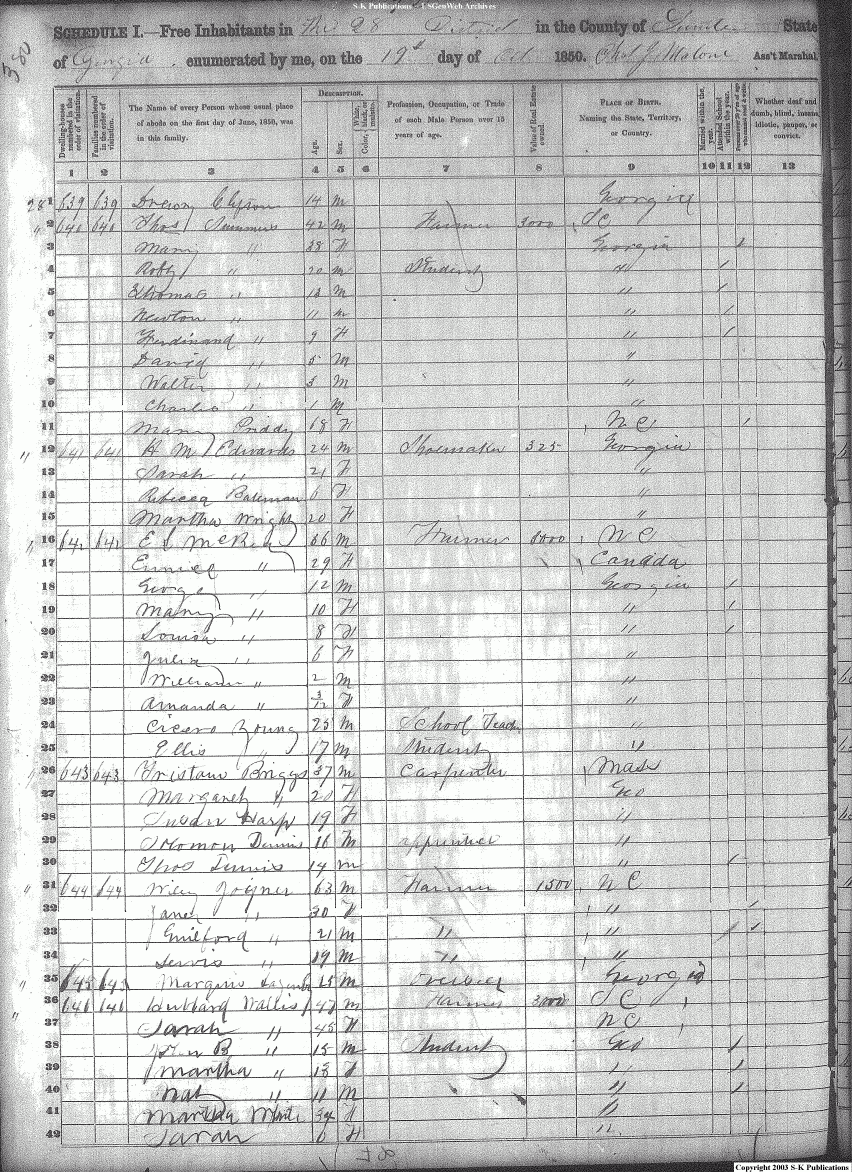 S-K Publications - USGenWeb Archives
380
SCHEDULE I.—Free Inhabitants in The 28 District in the County of Sumter State
of Georgia enumerated by me, on the 19th day of Oct 1850. Chas J Malone Ass't Marshal.
Dwelling-houses numbered in the order of visitation.
Families numbered in the order of visitation.
The Name of every Person whose usual place of abode on the first day of June, 1850, was in this family.
DESCRIPTION.
Age.
Sex.
Color, White, black, or mulatto.
Profession, Occupation, or Trade of each Male Person over 15 years of age.
Value of Real Estate owned.
PLACE OF BIRTH. Naming the State, Territory, or Country.
Married within the year.
Attended School within the year.
Persons over 20 y'rs of age who cannot read & write.
Whether deaf and dumb, blind, insane, idiotic, pauper, or convict.
1 2 3 4 5 6 7 8 9 10 11 12 13
1 639 639 14 M Georgia
2 640 640 Thos Summers 42 M Farmer 3000 SC
3 Mary " 38 F Georgia
4 " 20 M Student " /
5 Thomas " 13 M " /
6 Newton " 11 M " /
7 Ferdinand " 9 F " /
8 David " 5 M "
9 Walter " 3 M "
10 Charles " 1 M "
11 Mary Priddy 18 F NC
12 641 641 H M Edwards 24 M Shoemaker 325 Georgia
13 Sarah " 21 F "
14 Rebecca Bateman 6 F "
15 Martha Wright 20 F "
16 642 642 36 M Farmer NC
17 " 29 F Canada
18 George " 12 M Georgia /
19 Mary " 10 F " /
20 Louisa " 8 F " /
21 Julia " 6 F "
22 William " 2 M "
23 Amanda " 3/12 F "
24 Cicero Young 25 M School Teacher "
25 Ellis " 17 M Student "
26 643 643 Tristam Briggs 37 M Carpenter Mass
27 Margaret " 20 F Geo
28 Susan Harp 19 F "
29 Solomon Dennis 16 M apprentice "
30 Thos Dennis 14 M " /
31 644 644 Wiley Joyner 63 M Farmer 1500 NC
32 " 30 F "
33 Guilford " 21 M " "
34 " 19 M " "
35 645 645 15 M Overseer Georgia
36 646 646 Hubbard Wallis 47 M Farmer 3000 SC
37 Sarah " 45 F NC
38 " 15 M Student Geo /
39 Martha " 13 F " /
40 " 11 M " /
41 Martha White 34 F "
42 Sarah 6 F "
Copyright 2003 S-K Publications